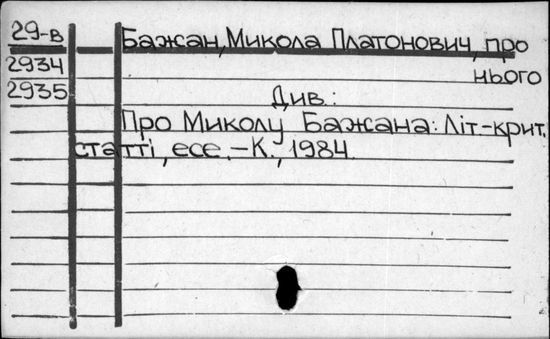 29-в Бажан, Микола Платонович, про
2934 нього
2935 Див.:
Про Миколу Бажана: Літ-крит.
статті, есе. – К., 1984.